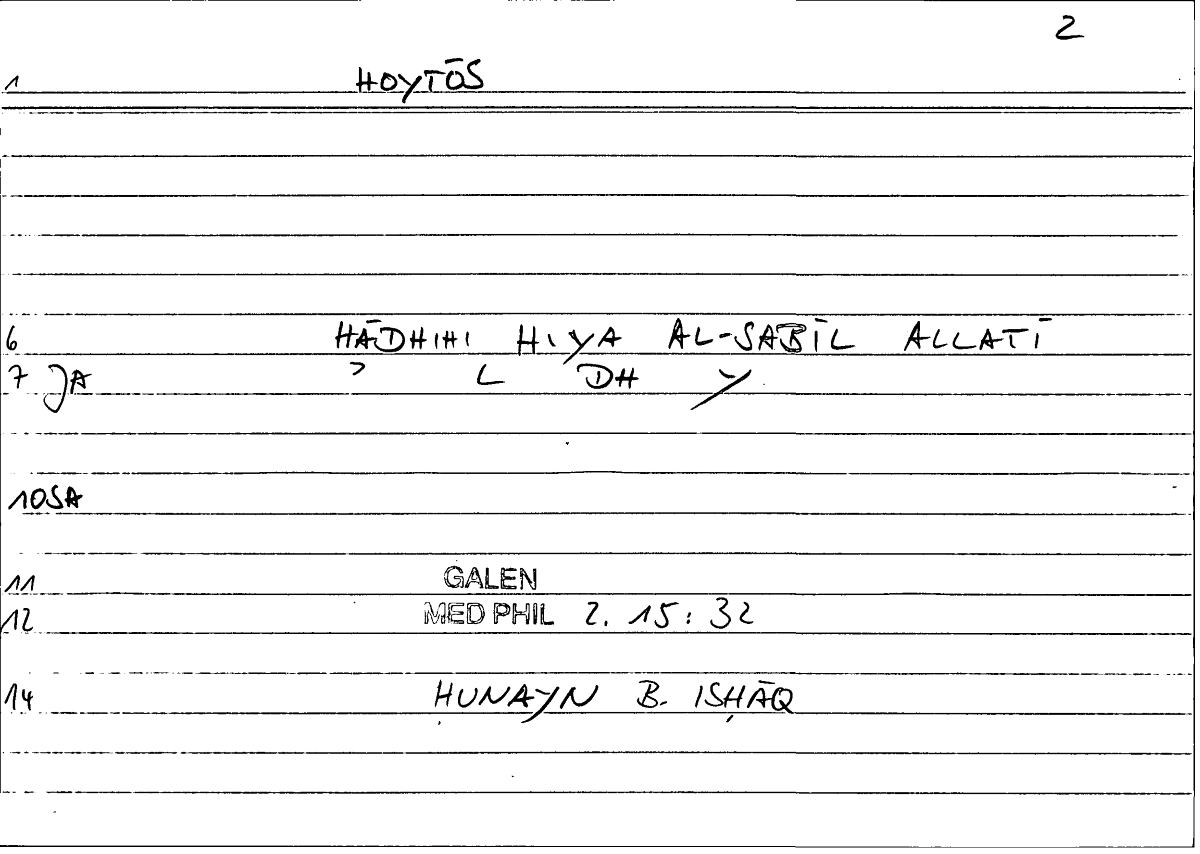 2
1 HOYTŌS
6 HĀDHIHI HIYA AL-SABĪL ALLATĪ
7 JA ʾ L DH Y
10SA
11 GALEN
12 MED PHIL 2. 15 : 32
14 ḤUNAYN B. ISḤĀQ